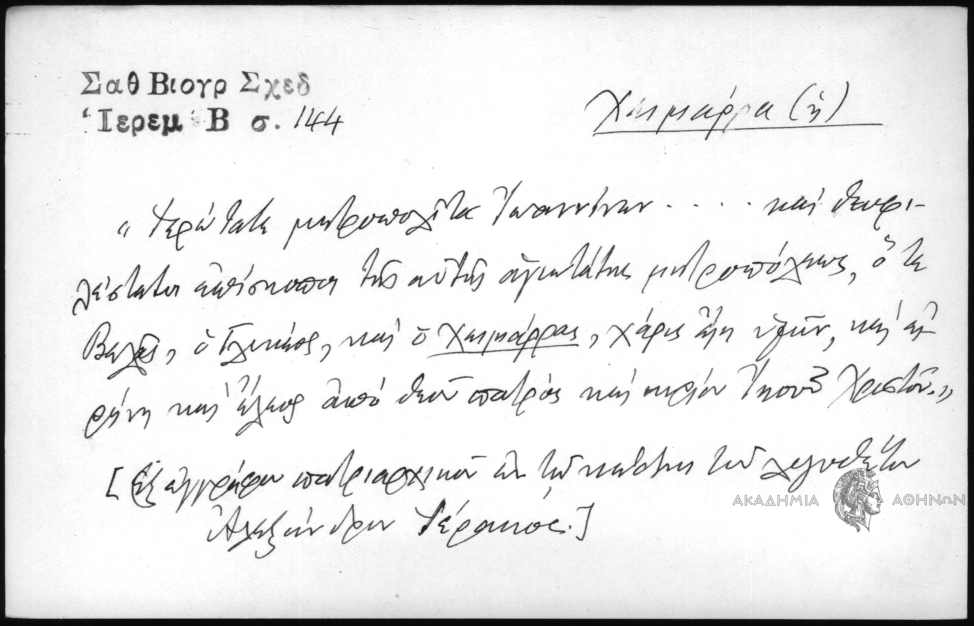 Σαθ Βιογρ Σχεδ
Ἱερεμ Β σ. 144
Χειμάρρα (ἡ)
"Ἱερώτατε μητροπολῖτα Ἰωαννίνων . . . . . καὶ θεοφι-
λέστατοι ἐπίσκοποι τῆς αὐτῆς ἁγιωτάτης μητροπόλεως, ὅ τε
Βελᾶς, ὁ Γλυκέος, καὶ ὁ Χειμάρρας, χάρις εἴη ὑμῖν, καὶ εἰ-
ρήνη καὶ ἔλεος ἀπό θεοῦ πατρός καὶ κυρίου Ἰησοῦ Χριστοῦ."
[Ἐξ ἐγγράφου πατριαρχικοῦ ἐκ τοῦ κώδικος τοῦ λογοθέτου
Ἀλεξάνδρου Γέρακος.]
ΑΚΑΔΗΜΙΑ ΑΘΗΝΩΝ